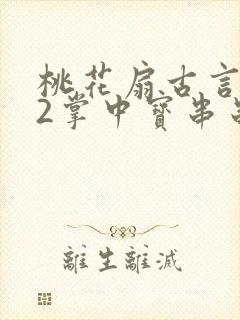 桃花扇古言
2掌中寳串
離生離滅